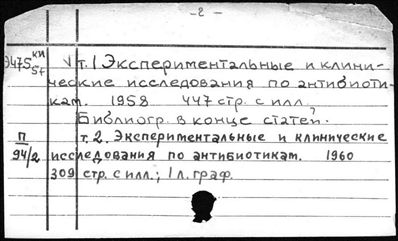 – 2 –
т. 1 Экспериментальные и клини-
ческие исследования по антибиоти-
кам. 1958 447 стр. с илл.
Библиогр. в конце статей.
П
94/2
т. 2. Экспериментальные и клинические
исследования по антибиотикам. 1960
309 стр. с илл.; 1 л. граф.